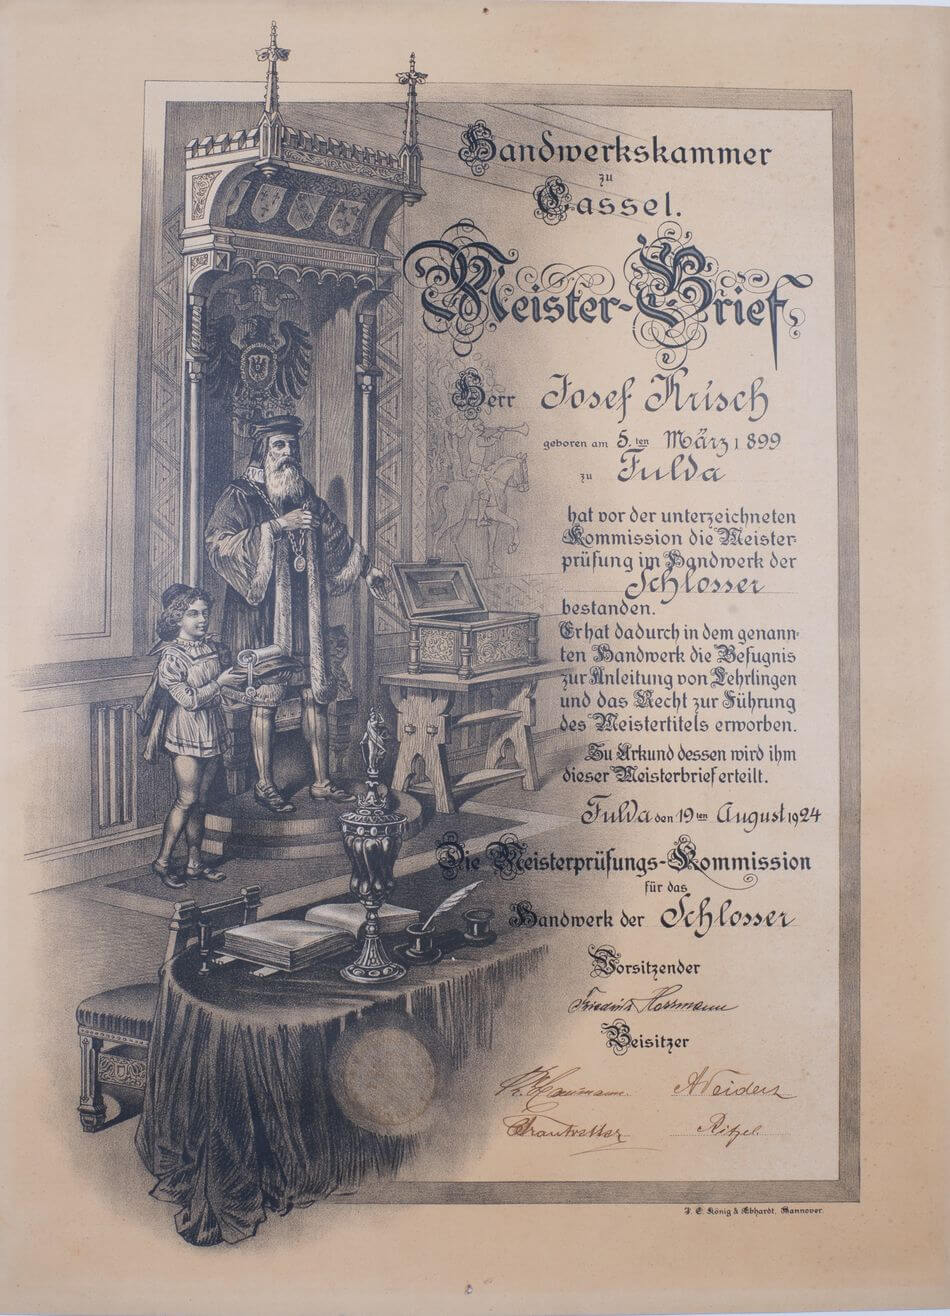 Handwerkskammer
zu
Cassel.
Meister-Brief
Herr Josef Krisch
geboren am 5.ten März 1899
zu Fulda
hat vor der unterzeichneten
Kommission die Meister-
prüfung im Handwerk der
Schlosser
bestanden.
Er hat dadurch in dem genann-
ten Handwerk die Befugnis
zur Anleitung von Lehrlingen
und das Recht zur Führung
des Meistertitels erworben.
Zu Urkund dessen wird ihm
dieser Meisterbrief erteilt.
Fulda den 19ten August 1924
Die Meisterprüfungs-Kommission
für das
Handwerk der Schlosser
Vorsitzender
Beisitzer
Ritzel
J. C. König & Ebhardt, Hannover.